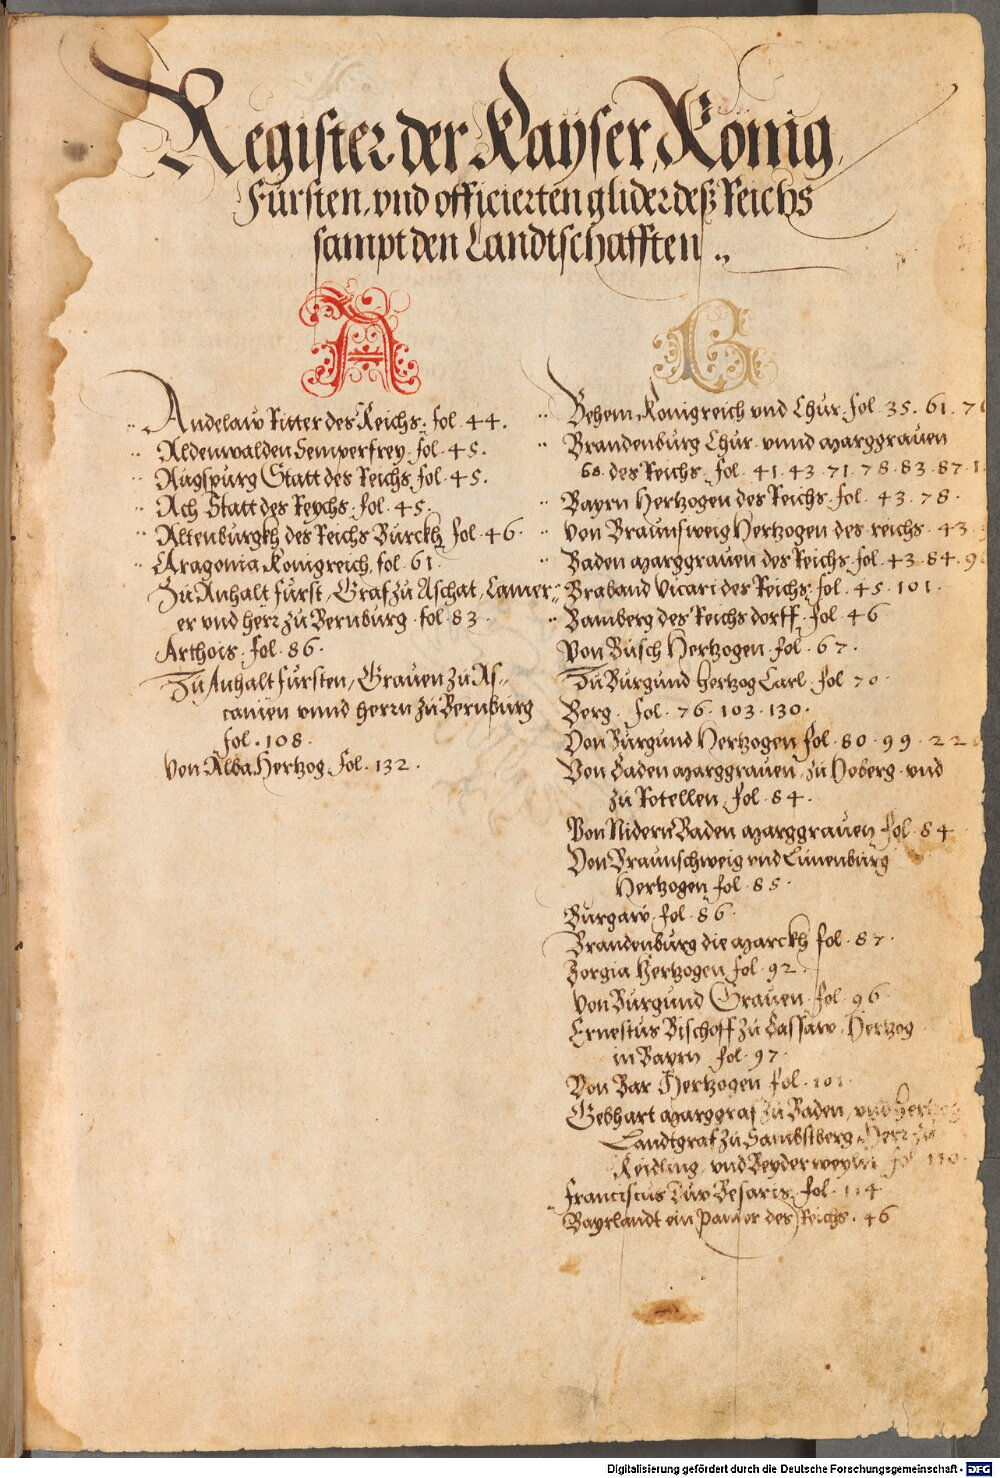 Register der Kayser, König,
Fürsten, vnd officierten glider deß Reichs
sampt den Landtschafften
A
B
Andelaw Ritter des Reichs. fol. 44.
Aldenwalden Semperfrey. fol. 45.
Augspurg Statt des Reichs. fol. 45.
Ach Statt des Reychs. fol. 45.
Altenburgkh des Reichs Burckh fol. 46.
Aragonia Konigreich. fol. 61.
Zu Anhalt fürst, Graf zu Aschat, Camer
er vnd herr zu Bernburg. fol. 83.
Arthois. fol. 86.
Zu Anhalt fürsten, Grauen zu As
canien vnnd herrn zu Bernburg
fol. 108.
Von Alba Hertzog. fol. 132.
Behem Konigreich vnd Chur. fol. 35. 61.
Brandenburg Chur. vnnd Marggrauen
des Reichs. fol. 41. 43. 71. 78. 83. 87.
Bayrn Hertzogen des Reichs. fol. 43. 78.
Von Braunsweig Hertzogen des reichs. 43.
Baden Marggrauen des Reichs. fol. 43. 84.
Braband Vicari des Reichs. fol. 45. 101.
Bamberg des Reichs dorff. fol. 46
Von Busch Hertzogen. fol. 67.
Zu Burgund hertzog Carl. fol. 70.
Berg. fol. 76. 103. 130.
Von Burgund Hertzogen fol. 80. 99.
Von Baden Marggrauen, zu Hoberg. vnd
zu Rotellen. fol. 84.
Von Nidern Baden Marggrauen fol. 84
Von Braunschweig vnd Lünenburg
Hertzogen fol. 85.
Burgaw. fol. 86.
Brandenburg die Marckh fol. 87.
Borgia Hertzogen fol. 92.
Von Burgund Grauen. fol. 96.
Ernestus Bischoff zu Bassaw, Hertzog
in Bayrn fol. 97.
Von Bar Hertzogen fol. 101.
Gebhart Marggraf zu Baden, vnd
Landtgraf zu Herr zu
vnd Beyder
Franciscus fol. 114
Bayrlandt ein Paner des Reichs. 46
Digitalisierung gefördert durch die Deutsche Forschungsgemeinschaft - DFG